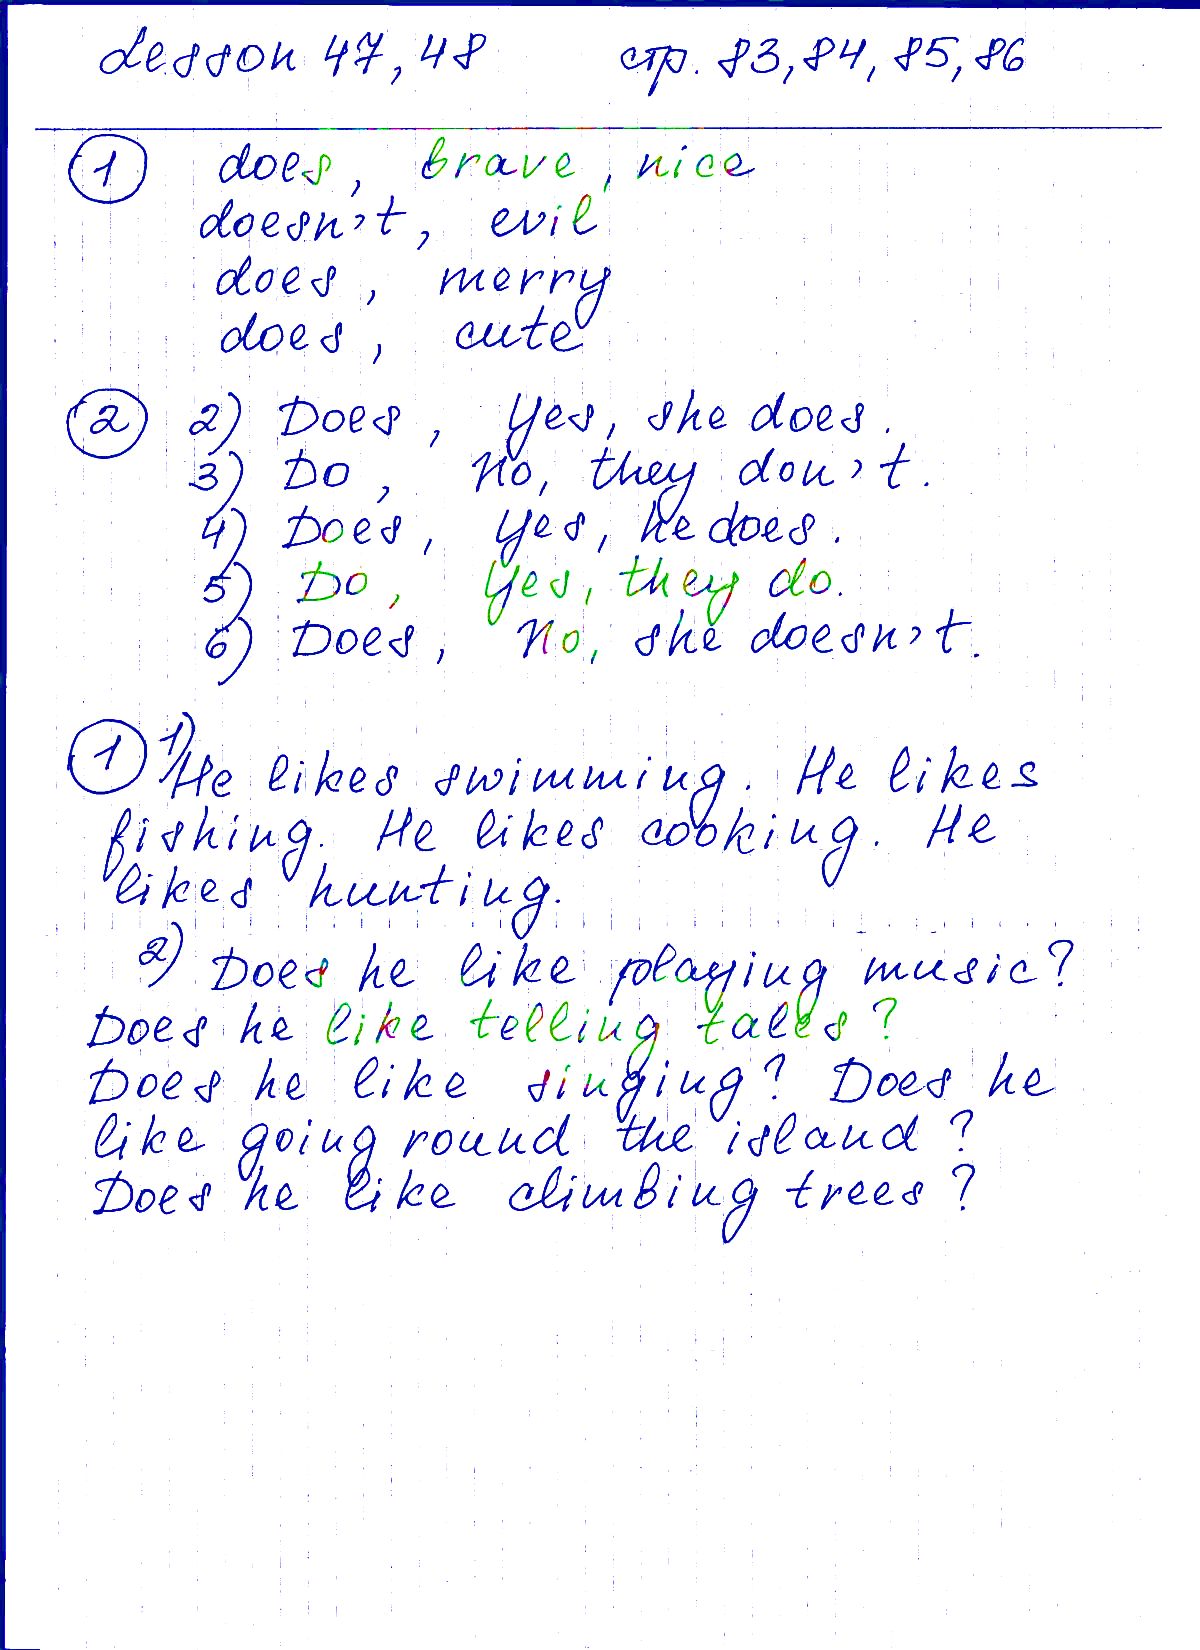 Lesson 47, 48 стр. 83, 84, 85, 86
1 does, brave, nice
doesn't, evil
does, merry
does, cute
2 2) Does, Yes, she does.
3) Do, No, they don't.
4) Does, Yes, he does.
5) Do, Yes, they do.
6) Does, No, she doesn't.
1 1) He likes swimming. He likes
fishing. He likes cooking. He
likes hunting.
2) Does he like playing music?
Does he like telling tales?
Does he like singing? Does he
like going round the island?
Does he like climbing trees?